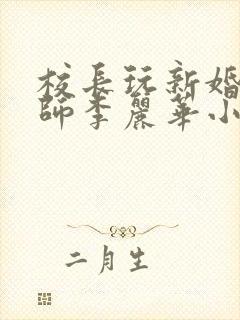 校長玩新婚
師李麗華小
二月生